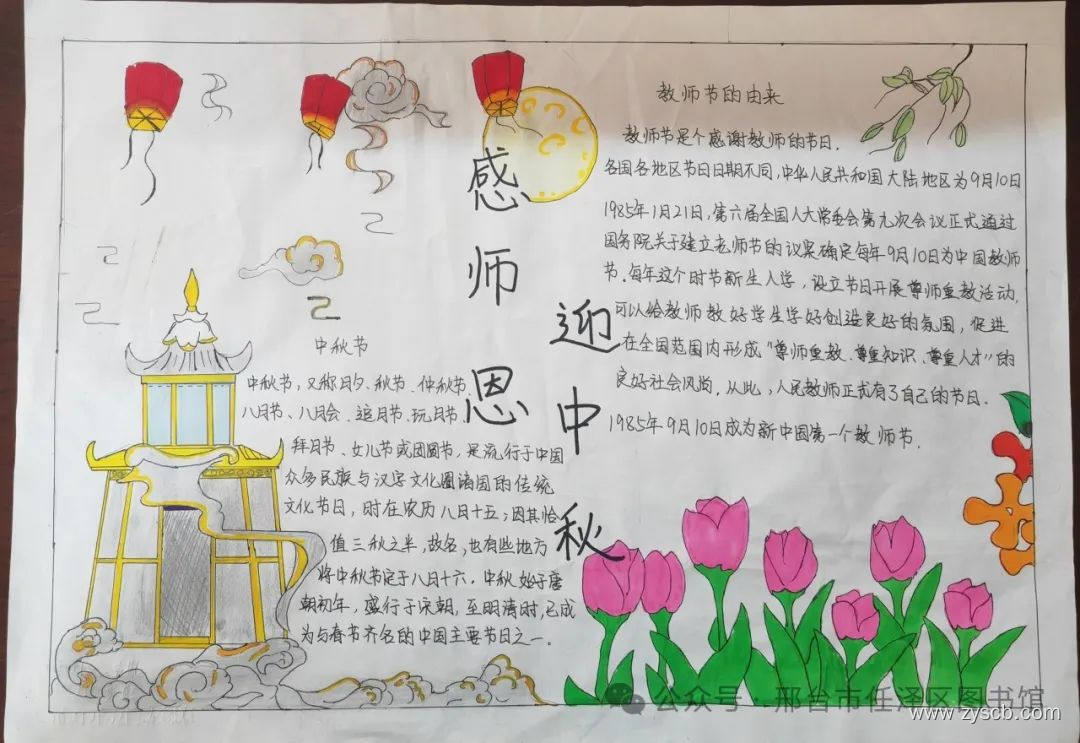 感师恩
迎中秋
教师节的由来
教师节是个感谢教师的节日.
各国各地区节日日期不同,中华人民共和国大陆地区为9月10日
1985年1月21日,第六届全国人大常委会第九次会议正式通过
国务院关于建立老师节的议案确定每年9月10日为中国教师
节.每年这个时节新生入学,设立节日开展尊师重教活动,
可以给教师教好学生学好创造良好的氛围,促进
在全国范围内形成“尊师重教、尊重知识、尊重人才”的
良好社会风尚,从此,人民教师正式有了自己的节日.
1985年9月10日成为新中国第一个教师节.
中秋节
中秋节,又称月夕、秋节、仲秋节、
八月节、八月会、追月节、玩月节、
拜月节、女儿节或团圆节,是流行于中国
众多民族与汉字文化圈诸国的传统
文化节日,时在农历八月十五;因其恰
值三秋之半,故名,也有些地方
将中秋节定于八月十六,中秋始于唐
朝初年,盛行于宋朝,至明清时,已成
为与春节齐名的中国主要节日之一.
公众号·邢台市任泽区图书馆
www.zyscb.com